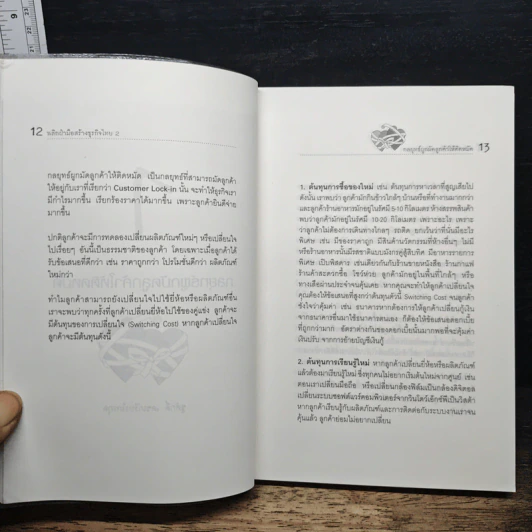 9
12 พลิกฝ่ามือสร้างธุรกิจไทย 2
กลยุทธ์ผูกมัดลูกค้าให้ติดหมัด เป็นกลยุทธ์ที่สามารถมัดลูกค้า
ให้อยู่กับเราที่เรียกว่า Customer Lock-in นั้น จะทำให้ธุรกิจเรา
มีกำไรมากขึ้น เรียกร้องราคาได้มากขึ้น เพราะลูกค้ายินดีจ่าย
มากขึ้น
ปกติลูกค้าจะมีการทดลองเปลี่ยนผลิตภัณฑ์ใหม่ๆ หรือเปลี่ยนใจ
ไปเรื่อยๆ อันนี้เป็นธรรมชาติของลูกค้า โดยเฉพาะเมื่อลูกค้าได้
รับข้อเสนอที่ดีกว่า เช่น ราคาถูกกว่า โปรโมชั่นดีกว่า ผลิตภัณฑ์
ใหม่กว่า
ทำไมลูกค้าสามารถยังเปลี่ยนใจไปใช้ยี่ห้อหรือผลิตภัณฑ์อื่น
เราจะพบว่าทุกครั้งที่ลูกค้าเปลี่ยนยี่ห้อไปใช้ของคู่แข่ง ลูกค้าจะ
มีต้นทุนของการเปลี่ยนใจ (Switching Cost) หากลูกค้าเปลี่ยนใจ
ลูกค้าจะมีต้นทุนดังนี้
กลยุทธ์ผูกมัดลูกค้าให้ติดหมัด 13
1. ต้นทุนการซื้อของใหม่ เช่น ต้นทุนการหาเวลาที่สูญเสียไป
ดังนั้น เราพบว่า ลูกค้ามักกินข้าวใกล้ๆ บ้านหรือที่ทำงานมากกว่า
และลูกค้าร้านอาหารมักอยู่ในรัศมี 5-10 กิโลเมตร ห้างสรรพสินค้า
พบว่าลูกค้ามักอยู่ในรัศมี 10-20 กิโลเมตร เพราะอะไร เพราะ
ว่าลูกค้าไม่ต้องการเดินทางไกลๆ รถติด ยกเว้นว่าที่นั่นมีอะไร
พิเศษ เช่น มีของราคาถูก มีสินค้านวัตกรรมที่ห้างอื่นๆ ไม่มี
หรือร้านอาหารนั้นมีรสชาติแบบมังกรคู่สู้สิบทิศ มีอาหารรายการ
พิเศษ เป็นพิสดาร เช่นเดียวกับร้านขายหนังสือ ร้านกาแฟ
ร้านค้าสะดวกซื้อ โชว์ห่วย ลูกค้ามักอยู่ในพื้นที่ใกล้ๆ หรือ
ทางเดินผ่านประจำจนคุ้นเคย หากคุณจะทำให้ลูกค้าเปลี่ยนใจ
คุณต้องให้ข้อเสนอที่สูงกว่าต้นทุนตัวนี้ Switching Cost จนลูกค้า
ชั่งใจว่าคุ้มค่า เช่น ธนาคารหากต้องการให้ลูกค้ากู้เปลี่ยนกู้เงิน
จากธนาคารอื่นมาใช้ธนาคารตนเอง ก็ต้องให้ข้อเสนอดอกเบี้ย
ที่ถูกกว่ามาก อัตราต่างกันของดอกเบี้ยนั้นมากพอที่จะคุ้มค่า
เงินปรับ จากการย้ายบัญชีเงินกู้
2. ต้นทุนการเรียนรู้ใหม่ หากลูกค้าเปลี่ยนยี่ห้อหรือผลิตภัณฑ์
แล้วต้องมาเรียนรู้ใหม่ ซึ่งทุกคนไม่อยากเริ่มต้นใหม่จากศูนย์ เช่น
ตอนเราเปลี่ยนมือถือ หรือเปลี่ยนกล้องฟิล์มเป็นกล้องดิจิตอล
เปลี่ยนระบบซอฟต์แวร์คอมพิวเตอร์จากวินโดว์เอ็กซ์พีเป็นวิสต้า
หากลูกค้าเรียนรู้กับผลิตภัณฑ์และการติดต่อกับระบบงานเราจน
คุ้นแล้ว ลูกค้าย่อมไม่อยากเปลี่ยน